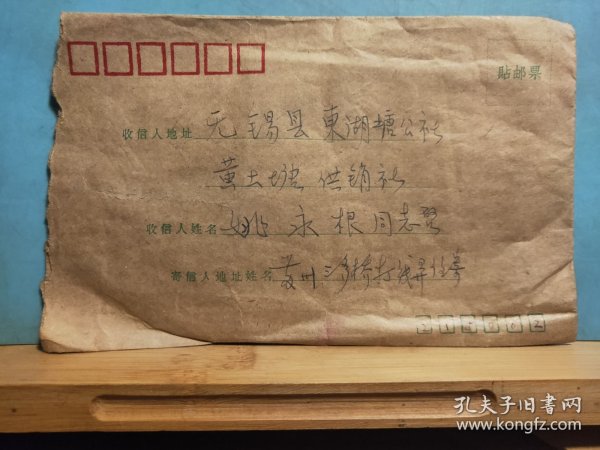 贴邮票
收信人地址 无锡县東湖塘公社
黄土塘供销社
收信人姓名 姚永根同志
寄信人地址姓名 苏州三多桥
孔夫子旧书网
www.kongfz.com